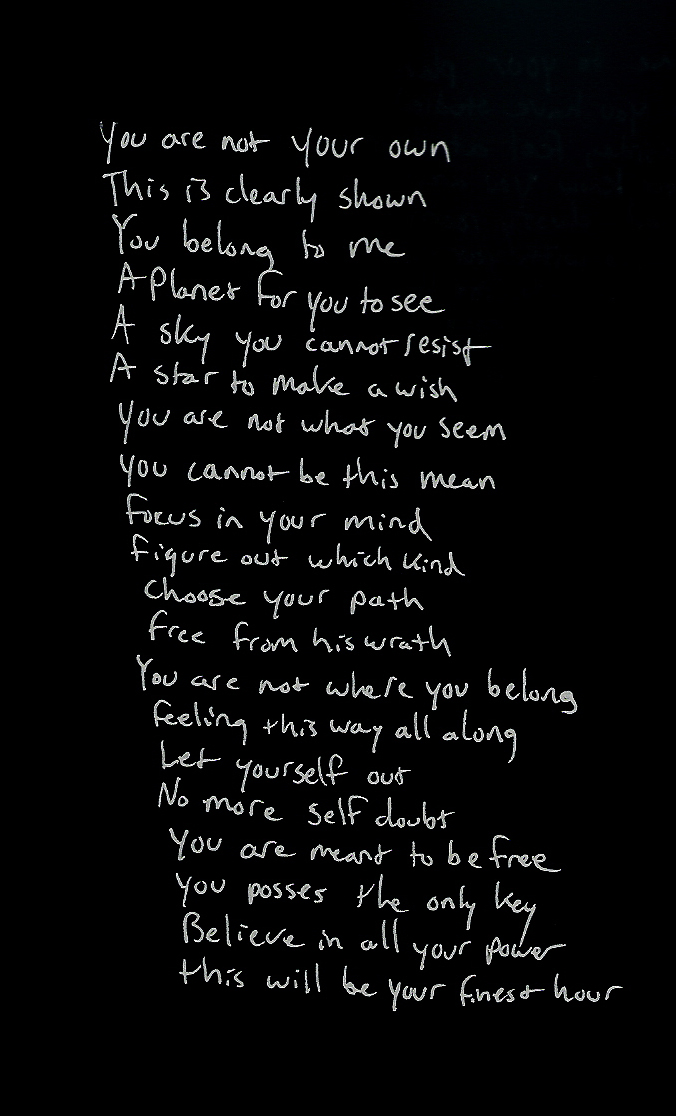 You are not your own
This is clearly shown
You belong to me
A Planet for you to see
A sky you cannot resist
A star to make a wish
You are not what you seem
You cannot be this mean
Focus in your mind
Figure out which kind
Choose your path
Free from his wrath
You are not where you belong
Feeling this way all along
Let yourself out
No more self doubt
You are meant to be free
You posses the only key
Believe in all your power
this will be your finest hour